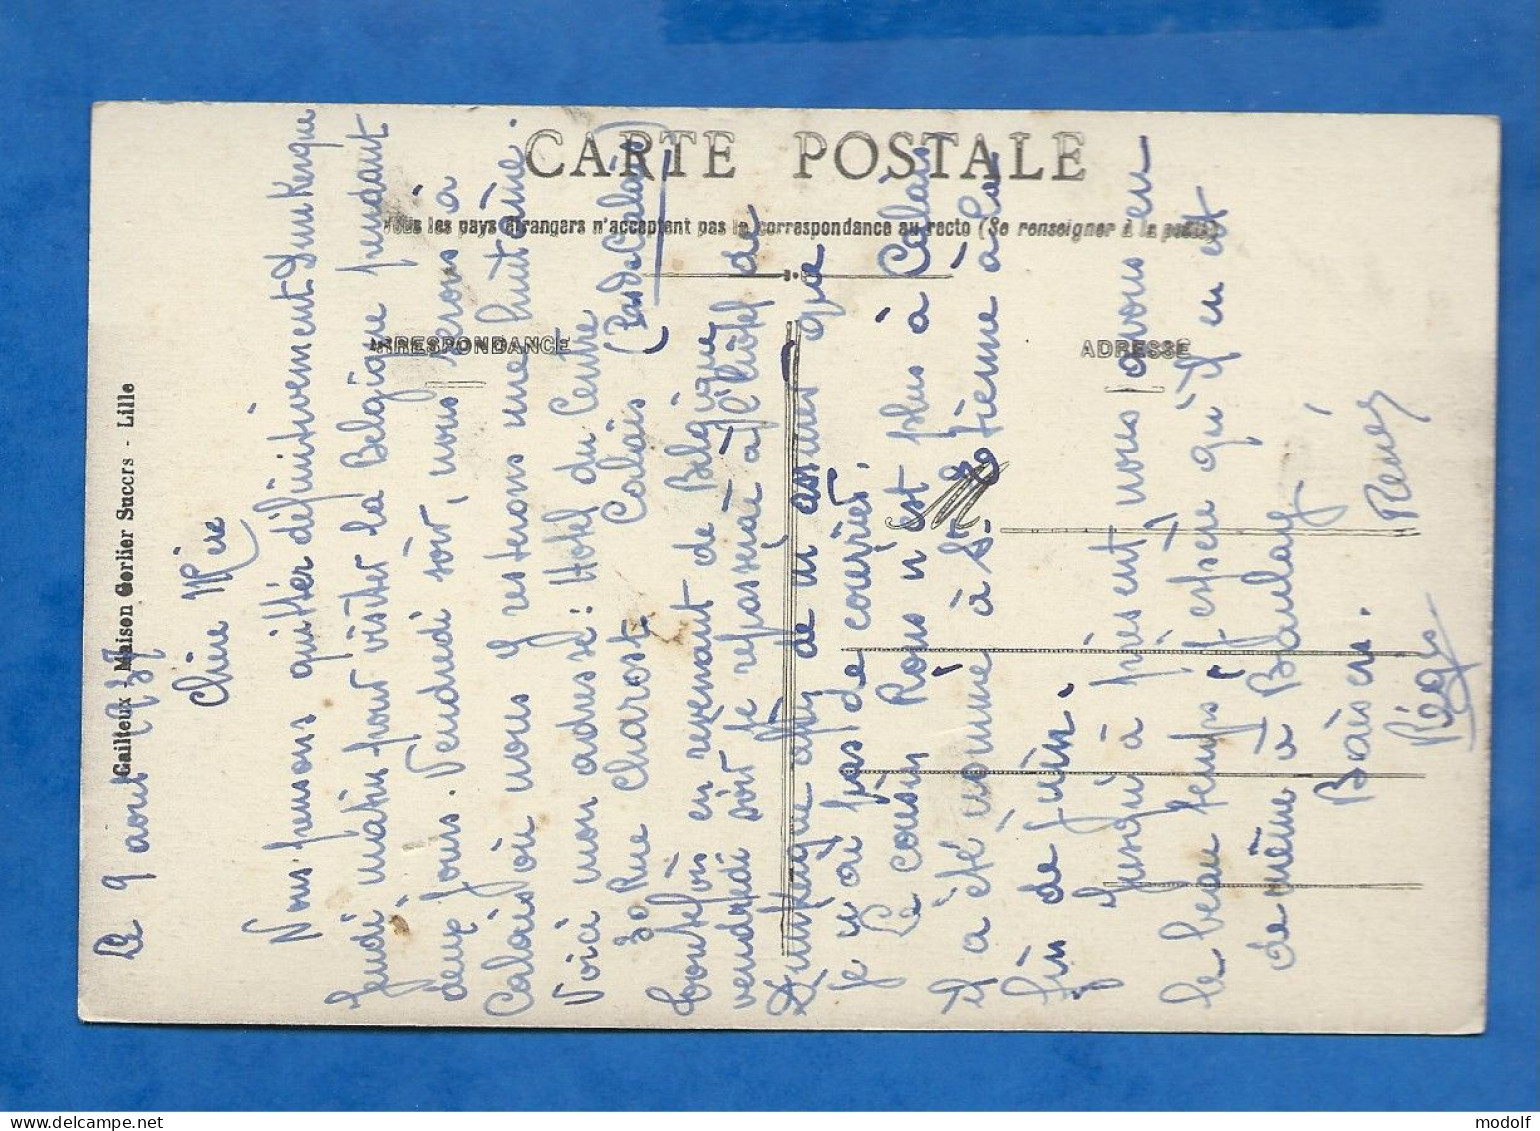 CARTE POSTALE
Tous les pays étrangers n'acceptent pas la correspondance au recto (Se renseigner à la poste)
CORRESPONDANCE
ADRESSE
M
Gailteux - Maison Gorlier Succrs - Lille
Le 9 aout 1937
Chère Mère
Nous pensons quitter définitivement Dunkerque
Jeudi matin pour visiter la Belgique pendant
deux jours. Vendredi soir, nous serons à
Calais où nous y resterons une huitaine.
Voici mon adresse : Hotel du Centre
30 Rue Charost Calais (Pas de Calais)
toutefois en revenant de Belgique
vendredi soir je repasserai à l'hôtel de
Dunkerque afin de m'assurer que
je n'ai pas de courrier.
Le cousin Rous n'est plus à Calais
il a été nommé à St. Etienne à la
fin de juin.
Jusqu'à présent nous avons eu
le beau temps ; j'espère qu'il en est
de même à Baulay,
Baisers.
Régis René
modolf